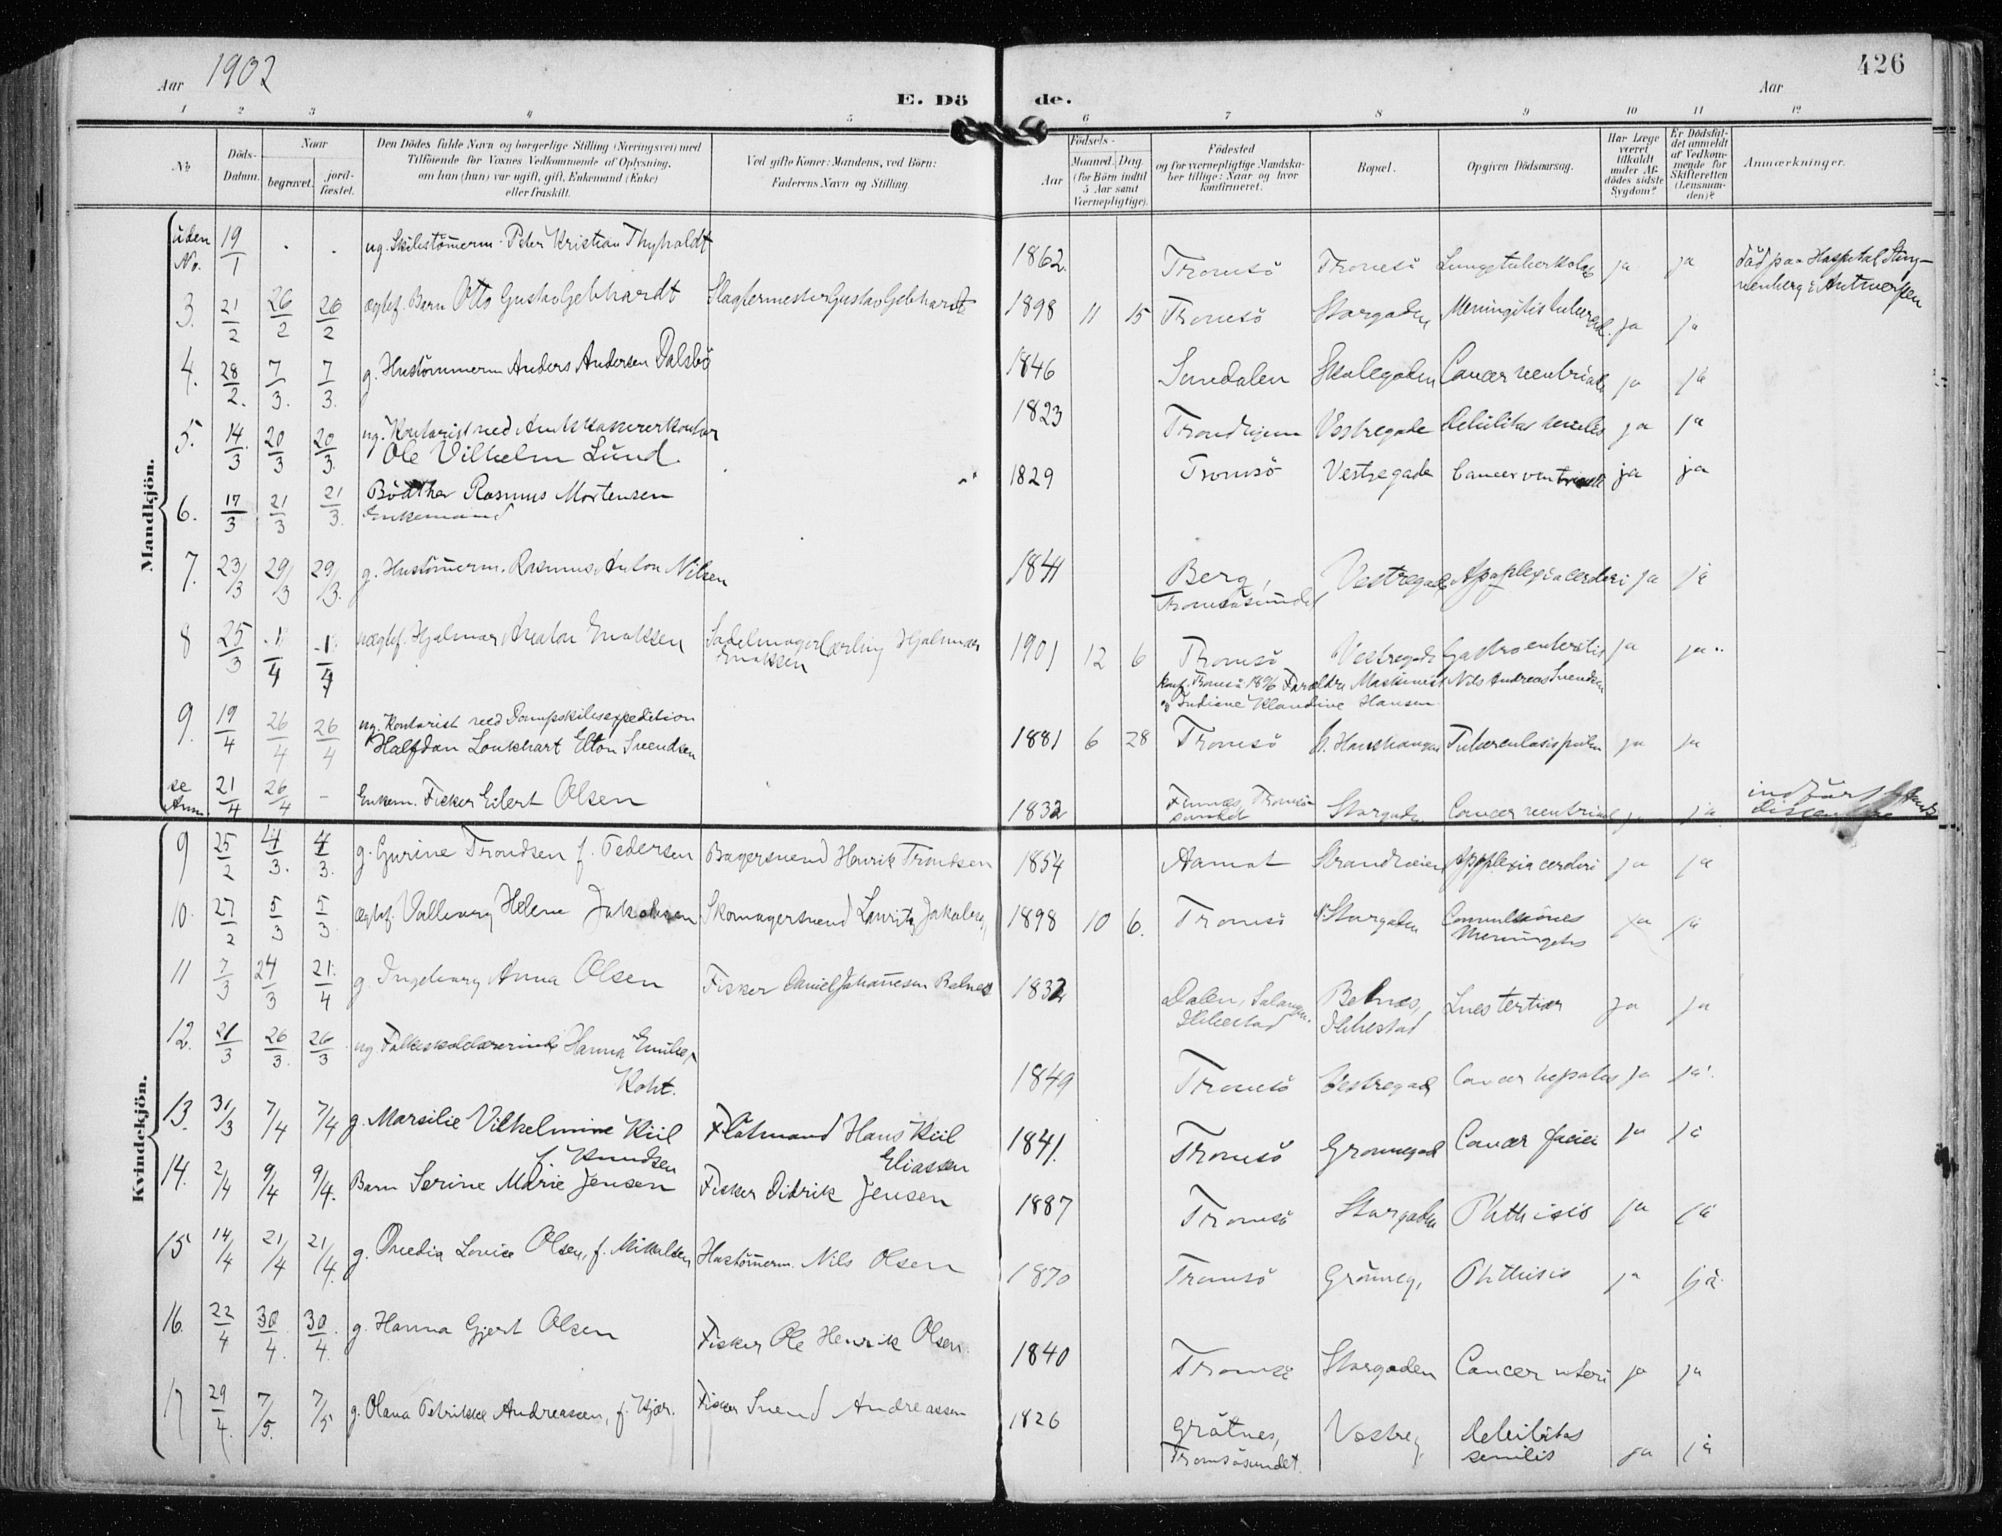 Aar 1902
E. Döde.
426
Aar
1 2 3 4 5 6 7 8 9 10 11 12
No.
Döds-Datum.
Naar
begravet.
jord-fæstet.
Den Dödes fulde Navn og borgerlige Stilling (Næringsvei) med
Tilföiende for Voxnes Vedkommende af Oplysning,
om han (hun) var ugift, gift, Enkemand (Enke)
eller fraskilt.
Ved gifte Koner: Mandens, ved Börn:
Faderens Navn og Stilling.
Födsels-
Aar
Maaned. Dag.
(for Börn indtil
5 Aar samt
Værnepligtige).
Födested
og for værnepligtige Mandska-
ber tillige: Naar og hvor
konfirmeret.
Bopæl.
Opgiven Dödsaarsag.
Har Læge
været
tilkaldt
under Af-
dödes sidste
Sygdom?
Er Dödsfal-
det anmeldt
af Vedkom-
mende for
Skifteretten
(Lensman-
den)?
Anmærkninger.
Mandkjön.
uden No. 19/1 . . ug. Skibstömerm. Peter Kristian Thyholdt 1862 Tromsö Tromsö Lungetuberkulose ja ja Död paa Hospital i Antwerpen
3. 21/2 26/2 26/2 ægtef. Barn Otto Gustav Gebhardt Slagtermester Gustav Gebhardt 1898 11 15 Tromsö Storgaden Meningitis tubercul. ja ja
4. 28/2. 7/3. 7/3. g. Hustömmerm Anders Andersen Dalsbö 1846 Sundalen Skolegaden Cancer ventriculi ja ja
5. 14/3 20/3 20/3. ug. Kontorist ved Amtskassererkontor
Ole Vilhelm Lund 1823 Trondhjem Vestregade Debilitas senilis ja ja
6. 17/3 21/3 21/3. Bödker Rasmus Mortensen
Enkemand 1829 Tromsö Vestregade Cancer ventriculi ja ja
7. 23/3 29/3 29/3. g. Hustömerm. Rasmus Anton Nilsen 1841 Berg, Tromsösundet Vestregade Apoplexia cerebri ja ja
8 25/3 1/4 1/4 uægtef. Hjalmar Anton Enoksen Sadelmagerlærling Hjalmar Enoksen 1901 12 6 Tromsö Vestregade Gastroenteritis ja ja
konf. Tromsö 1896 Forældre Maskinist Nils Andreas Svendsen
og Indiane Klandine Hansen
9. 19/4 26/4 26/4 ug. Kontorist ved Dampskibsexpedition
Halfdan Lonkhart Elton Svendsen 1881 6 28 Tromsö Tuberculosis pulm ja ja
se Anm 21/4 26/4 – Enkem. Fisker Eilert Olsen 1832 Finnæs, Tromsösundet Storgaden Cancer ventriculi ja ja indfört
Kvindekjön.
9 25/2 4/3. 4/3. g. Gurine Trondsen f. Pedersen Bagersvend Henrik Trondsen 1854 Aamot Strandveien Apoplexia cerebri ja ja
10. 27/2 5/3 5/3. ægtef. Valborg Helene Jakobsen Skomagersvend Lauritz Jakobsen 1898 10 6. Tromsö Storgaden Convulsiones
Meningitis ja ja
11 7/3 24/3 21/4 g Ingeborg Anna Olsen Fisker Daniel Johannesen Belnes 1832 Dalen, Salangen. Ibbestad Belnæs, Ibbestad Lues tertiær ja ja
12. 21/3 26/3. 26/3 ug Folkeskolelærerinde Hanna Emilie
Koht. 1849 Tromsö Vestregad Cancer hepatis ja ja
13. 31/3 7/4 7/4 g. Marselie Vilhelmine Kiil
f. Knudsen Flåtmand Hans Kiil
Eliassen 1841. Tromsö Grönnegad Cancer faciei ja ja
14. 2/4 9/4 9/4. Barn Serine Marie Jensen Fisker Didrik Jensen 1887 Tromsö Storgaden Phthisis ja ja
15 14/4 21/4 21/4. g. Ovedia Lovise Olsen, f. Mikkelsen Hustömerm. Nils Olsen 1870 Tromsö Grönneg. Phthisis ja ja
16. 22/4 30/4. 30/4. g. Hanna Gjert Olsen Fisker Ole Henrik Olsen. 1840 Tromsö Storgaden Cancer uteri ja ja
17 29/4. 7/5. 7/5 g. Olava Petrikke Andreassen, f. Kjær. Fisker Svend Andreassen 1826 Gråtnes, Tromsösundet. Vestreg Debilitas
senilis ja ja